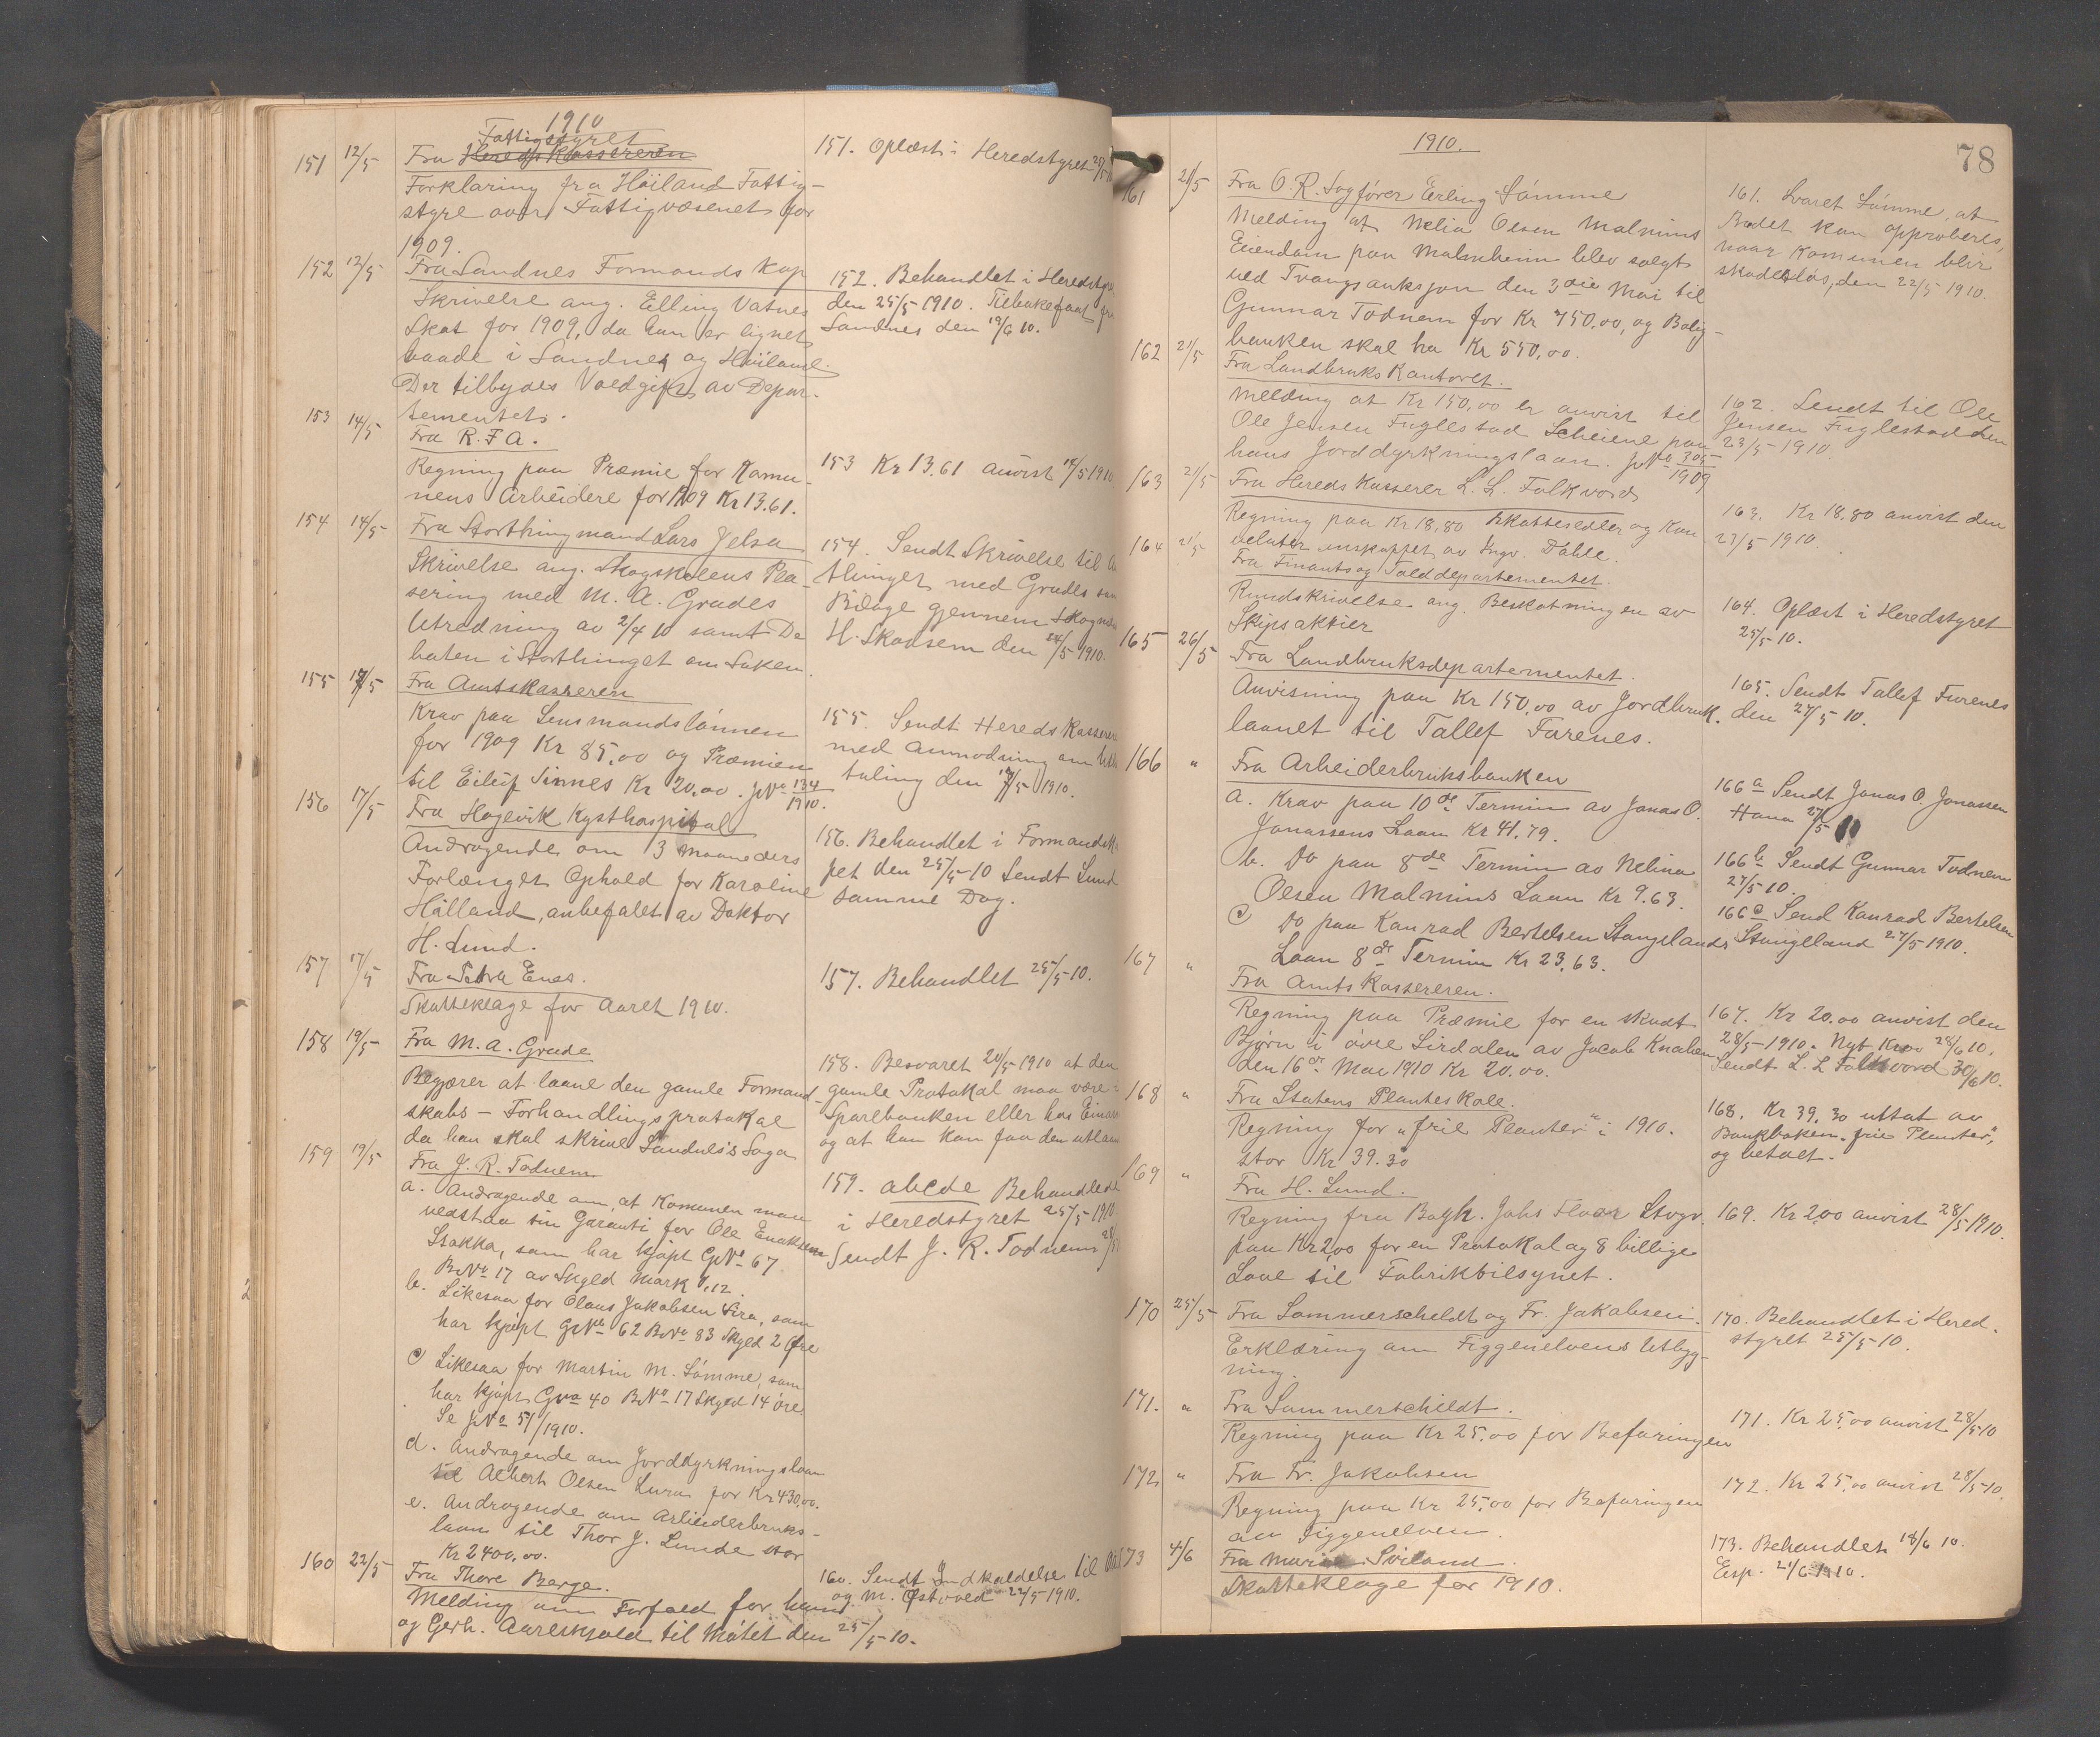 1910
Fattigstyret
151 12/5 Fra Hereds Kassereren
Forklaring fra Höiland Fattig-
styre over Fattigvæsenet for
1909.
151. Oplæst i Heredstyret 25/5
152 12/5 Fra Sandnes Formandskap
Skrivelse ang. Elling Vatnes
Skat for 1909, da han er lignet
baade i Sandnes og Höiland.
Der tilbydes Voldgift av Depar-
tementet.
152. Behandlet i Heredstyre
den 25/5 1910. Tilbakefaat fra
Sandnes den 19/6 10.
153 14/5 Fra R.F.A.
Regning paa Præmie for Komu-
nens Arbeidere for 1909 Kr 13.61.
153 Kr 13.61 anvist 14/5 1910
154 14/5 Fra Storthingmand Lars Jelsa
Skrivelse ang. Skogskolens Pla-
sering med M. A. Grudes
Utredning av 2/4 10 samt De
baten i Storthinget om Saken.
154. Sendt Skrivelse til
thinget med Grudes
Bilage gjennem Skogns
H. Skansem den 14/5 1910.
155 17/5 Fra Amtskasseren
Krav paa Lensmandslönnen
for 1909 Kr 85.00 og Præmien
til Eileif Sinnes Kr 20.00. JNo 134/1910.
155. Sendt Hereds Kasserer
med Anmodning om Utbe
taling den 17/5 1910.
156 17/5 Fra Hagevik Kysthospital
Andragende om 3 Maaneders
Forlænget Ophold for Karoline
Hålland, anbefalet av Doktor
H. Lund.
156. Behandlet i Formandska
pet den 25/5-10 Sendt Lund
samme Dag.
157 17/5 Fra Petra Enes.
Skatteklage for Aaret 1910.
157. Behandlet 25/5-10.
158 19/5 Fra M. A. Grude
Begjærer at laane den gamle Formand-
skabs-Forhandlingsprotokol
da han skal skrive Sandnes's Saga
158. Besvaret 20/5-1910 at den
gamle Protokol maa være i
Sparebanken eller hos Einar
og at han kan faa den utlaan
159 19/5 Fra J. R. Todnem
a. Andragende om, at Komunen maa
vedstaa sin Garanti for Ole Enoksen
Stokka, som har kjøpt GNo 67
BNo 17 av Skyld Mark 0,12.
b. Likesaa for Olaus Jakobsen Lura, som
har kjøpt GNo 62 BNo 83 Skyld 2 Øre
c Likesaa for Martin M. Sömme, som
har kjøpt GNo 40 BNo 17 Skyld 14 öre.
Se JNo 51/1910.
d. Andragende om Jorddyrkningslaan
til Albert Olsen Lura for Kr 430,00.
e. Andragende om Arbeiderbruks-
laan til Thor J. Lunde stor
Kr 2400,00.
159. abcde Behandlet
i Heredstyret 25/5 1910.
Sendt J. R. Todnem
160 22/5 Fra Thore Berge.
Melding om Forfald for ham
og Gerh. Aareskjold til Mötet den 25/5-10.
160. Sendt Indkaldelse til
og M. Östvold 22/5-1910.
1910.
78
161 21/5 Fra O. R. Sagförer Erling Sömme
Melding at Nelia Olsen Malmins
Eiendom paa Malmheim blev solgt
ved Tvangsauksjon den 3die Mai til
Gunnar Todnem for Kr 750,00, og Bolig-
banken skal ha Kr 550,00.
161. Svaret Sömme, at
Budet kan approberes,
naar Komunen blir
skadeslös, den 22/5 1910.
162 21/5 Fra Landbruks Kontoret.
Melding at Kr 150,00 er anvist til
Ole Jensen Fuglestad Scheiene paa
hans Jorddyrkningslaan. JNo 305/1909
162. Sendt til Ole
Jensen Fuglestad den
23/5-1910.
163 21/5 Fra Hereds Kasserer L. L. Folkvord
Regning paa Kr 18,80 Skattesedler og Kon
velutter indskaffet av Ingv. Dahle.
163. Kr 18,80 anvist den
23/5-1910.
164 21/5 Fra Finants og Tolddepartementet.
Rundskrivelse ang. Beskatningen av
Skipsaktier
164. Oplæst i Heredstyret
25/5-10.
165 26/5 Fra Landbruksdepartementet.
Anvisning paa Kr 150,00 av Jordbruk.
laanet til Tallef Furenes.
165. Sendt Tallef Furenes
den 27/5-10.
166 " Fra Arbeiderbruksbanken
a. Krav paa 10de Termin av Jonas O.
Jonassens Laan Kr 41.79.
b. Do paa 8de Termin av Nelina
Olsen Malmins Laan Kr 9.63.
c Do paa Konrad Bertelsen Stangelands
Laan 8de Termin Kr 23.63.
166 a Sendt Jonas O. Jonassen
Hana 27/5 10
166 b Sendt Gunnar Todnem
27/5 10.
166 c Send Konrad Bertelsen
Stangeland 27/5 1910.
167 " Fra Amts Kassereren.
Regning paa Præmie for en skudt
Bjørn i övre Sirdalen av Jacob Knaben
den 16de Mai 1910 Kr 20.00.
167. Kr 20.00 anvist den
28/5-1910. Nyt Krav 28/6 10.
Sendt L. L Folkvord 30/6 10.
168 " Fra Statens Planteskole.
Regning for "frie Planter" i 1910.
stor Kr 39.30
168. Kr 39.30 uttat av
Bankboken "frie Planter",
og betalt.
169 " Fra H. Lund.
Regning fra Bogh. Johs Floor Stvgr.
paa Kr 2,00 for en Protokol og 8 billige
Love til Fabriktilsynet.
169. Kr 2,00 anvist 28/5 1910.
170 25/5 Fra Sommerscheldt og Fr. Jakobsen.
Erklæring om Figgenelvens Utbyg-
ning.
170. Behandlet i Hered.
styret 25/5-10.
171. " Fra Sommerschildt.
Regning paa Kr 25.00 for Befaringen
171. Kr 25,00 anvist 28/5-10
172 " Fra Fr. Jakobsen
Regning paa Kr 25,00 for Befaringen
av Figgenelven.
172. Kr 25,00 anvist 28/5-10.
173 4/6 Fra Maria Sviland.
Skatteklage for 1910.
173. Behandlet 18/6 10.
Exp. 21/6 1910.